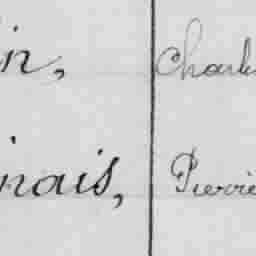 in, Charles
nais, Pierre